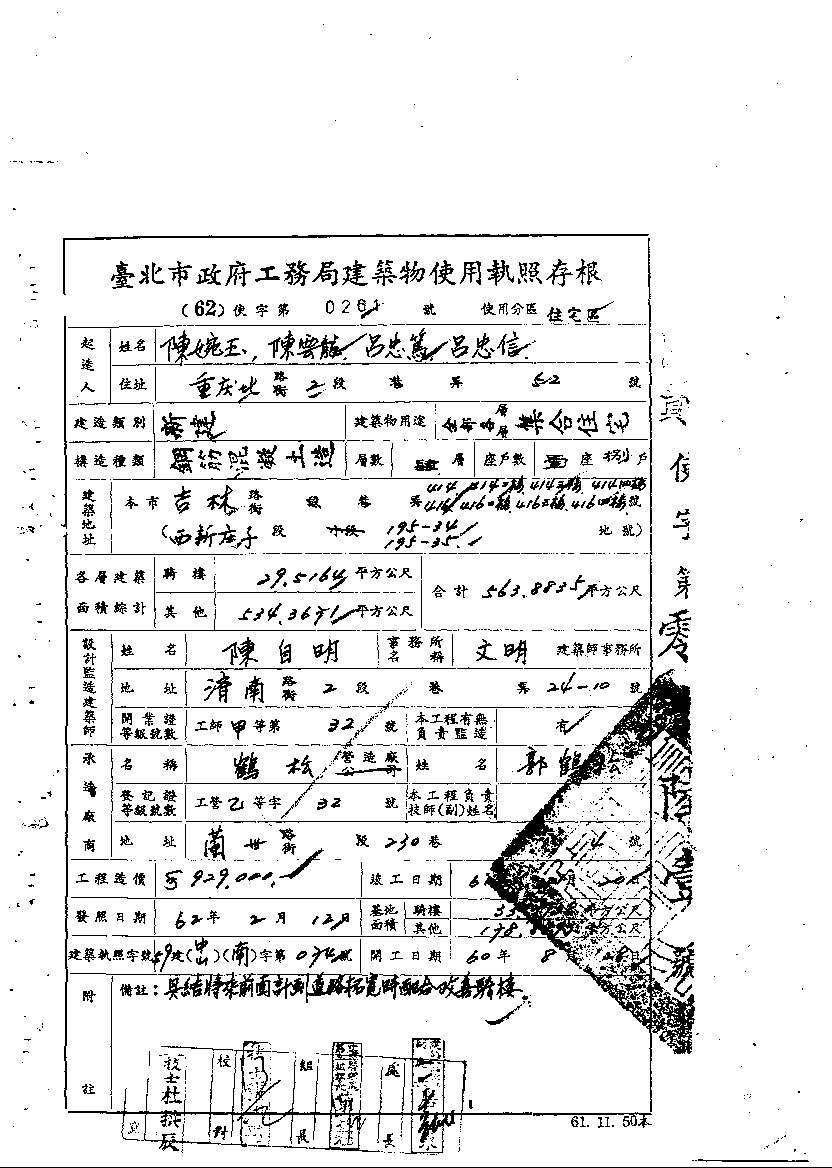 臺北市政府工務局建築物使用執照存根
(62)使字第 0261 號 使用分區 住宅區
起造人 姓名 陳婉玉, 陳雲龍 呂忠篤 呂忠信
住址 重庆北 路街 二段 巷 弄 52 號
建造類別 新建 建築物用途 全部各層層集合住宅
構造種類 鋼筋混凝土造 層數 肆層 座戶數 壹座捌戶
414 414-2樓 414-3樓 414-4樓
建築地址 本市 吉林 路街 段 巷 弄 416 416-2樓 416-3樓 416-4樓 號
(西新庄子段 小段 195-34 地號)
195-35
各層建築面積綜計 騎樓 29.5164 平方公尺 合計 563.8835 平方公尺
其他 534.3671 平方公尺
設計監造建築師 姓名 陳自明 事務所名稱 文明 建築師事務所
地址 濟南 路街 2段 巷 弄 24-10 號
開業證等級號數 工師甲等第 32 號 本工程有無負責監造 有
承造廠商 名稱 鶴松 營造廠公司 姓名 郭鶴松
登記證等級號數 工營乙等字 32 號 本工程負責技師(副)姓名
地址 蘭州 路街 段 230 巷 號
工程造價 929,000. 竣工日期
發照日期 62年 2月 12日 基地面積 騎樓 平方公尺
其他 平方公尺
建築執照字號 59建(中山)(南)字第 074 號 開工日期 60年 8月 日
附註 備註:具結將來前面計劃道路拓寬時配合改善騎樓.
技士杜撰辰 校對 組長 處長
61. 11. 50本
使字第零陸壹號